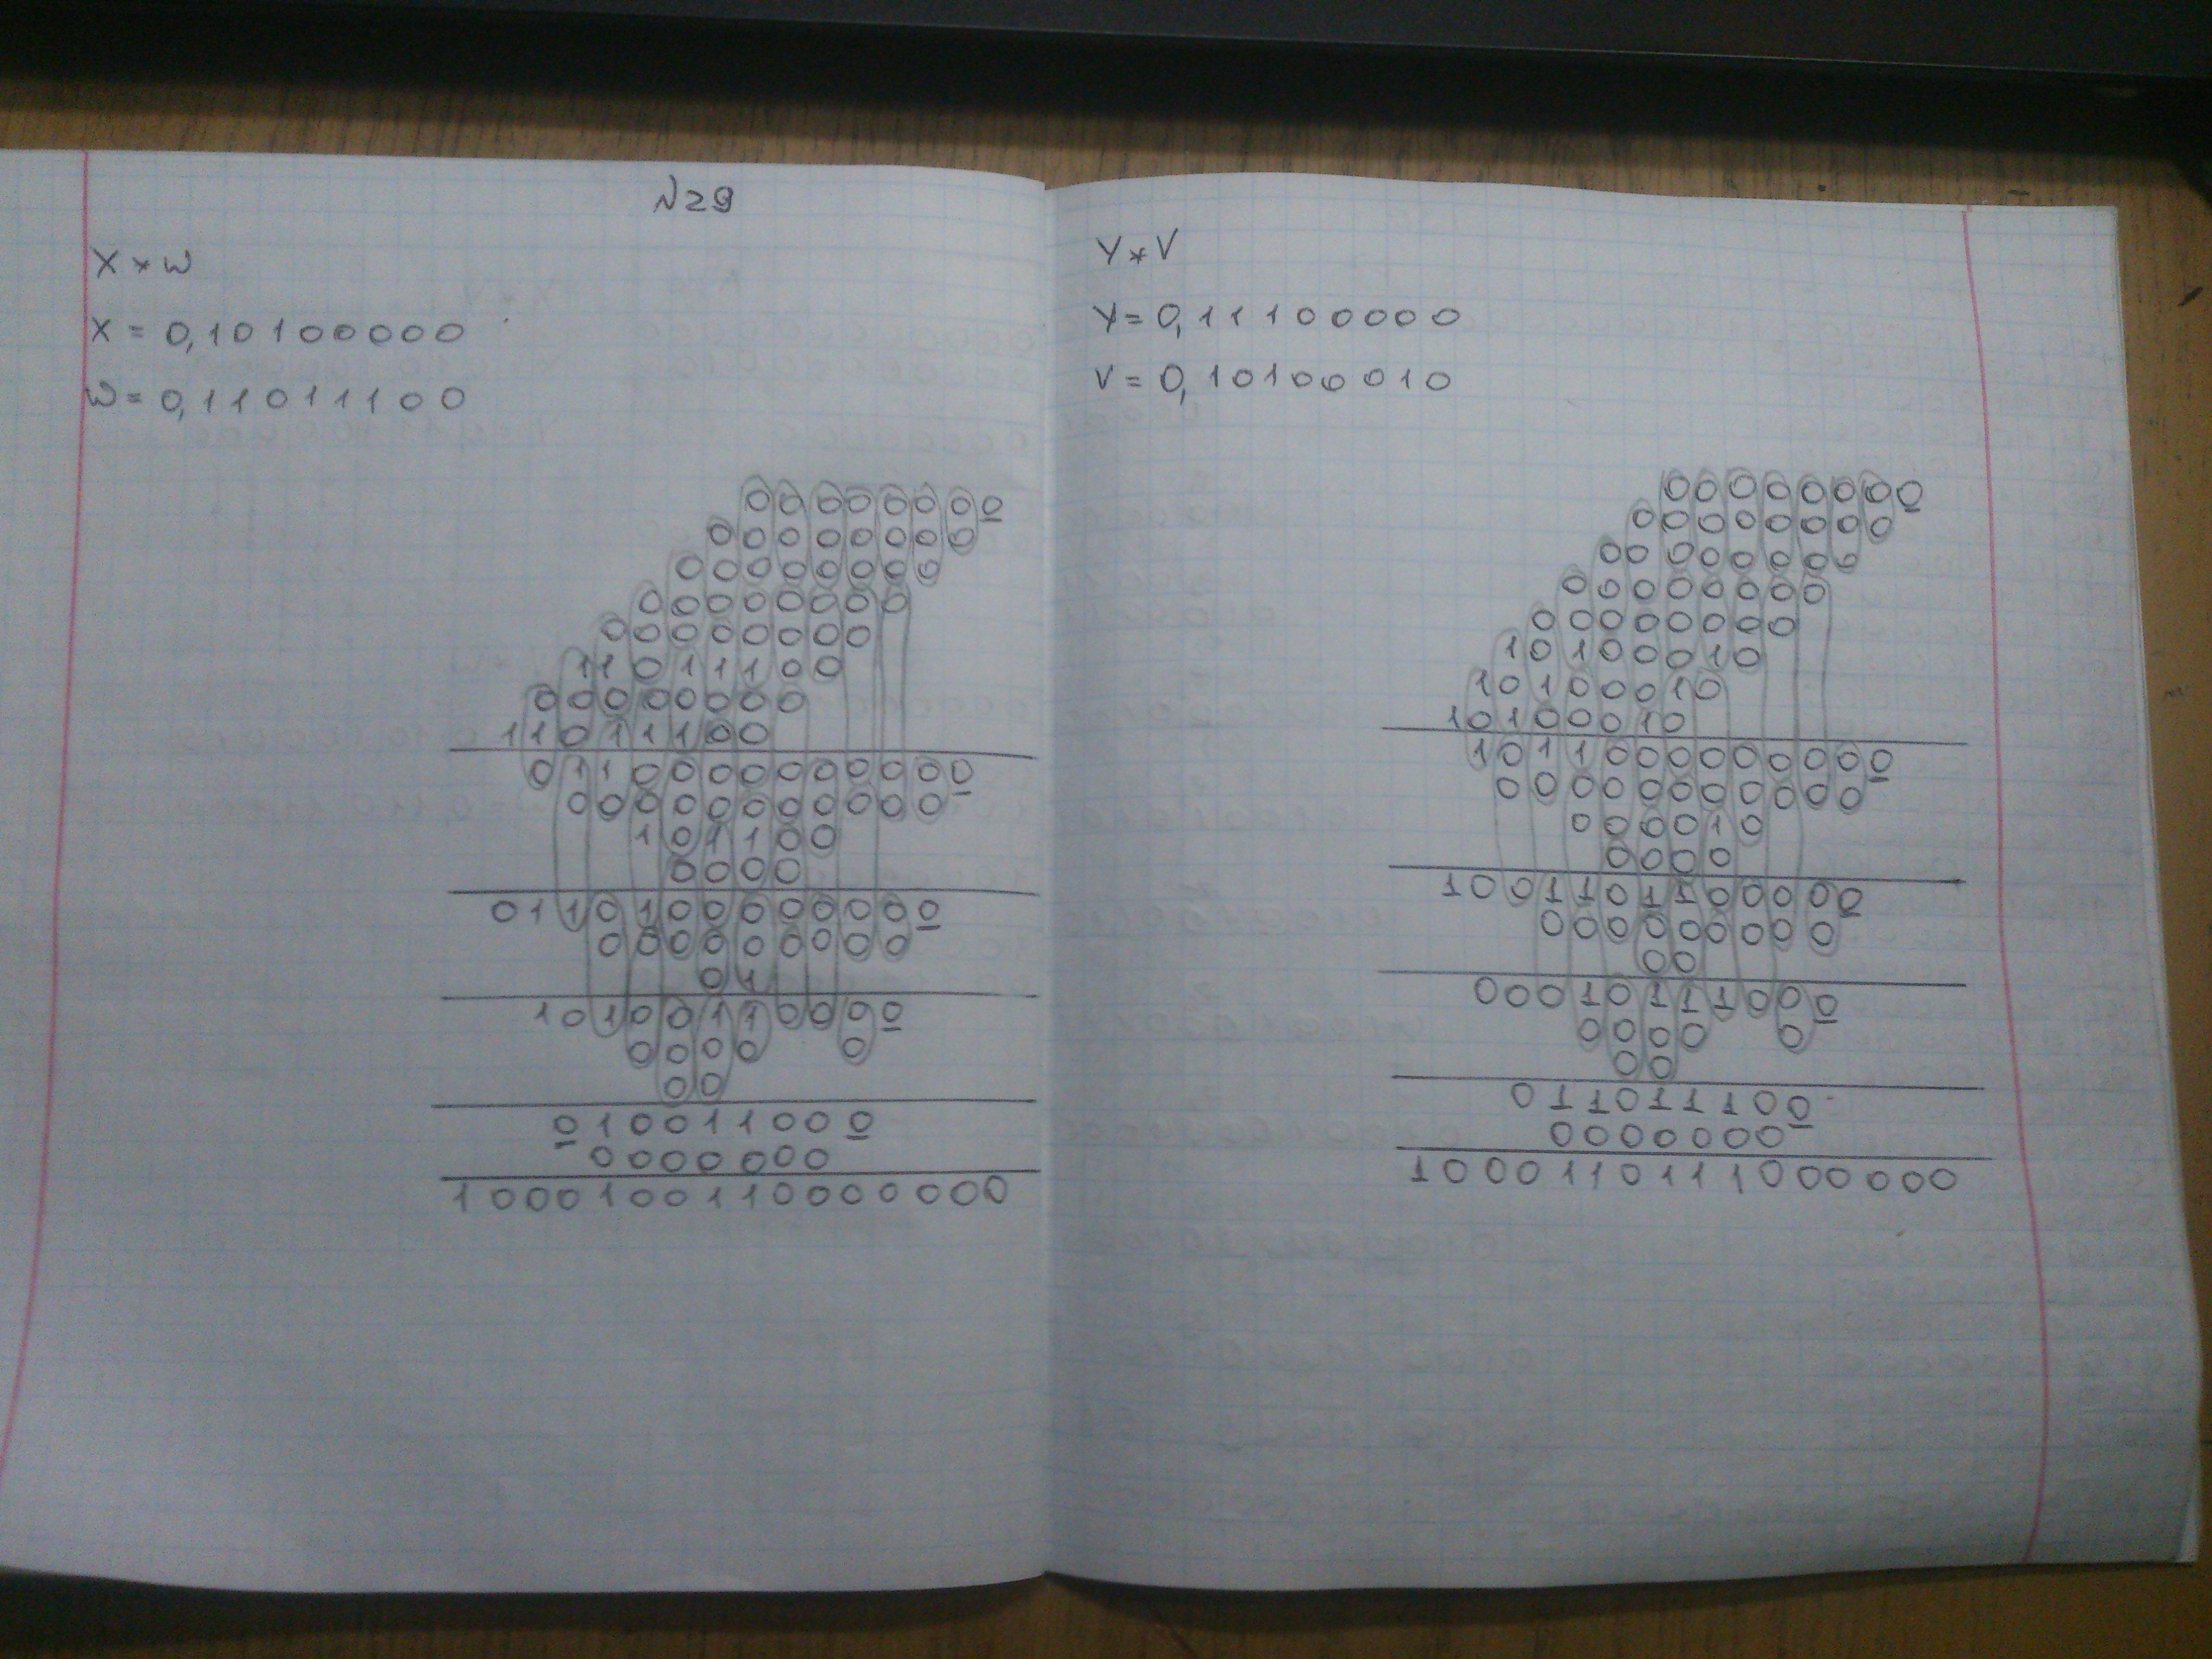 N29
X * W
X = 0,10100000
W = 0,11011100
00000000
00000000
00000000
00000000
00000000
11011100
00000000
11011100
0110000000000
00000000000
101100
0000
0110100000000
000000000
01
10100110000
0000 0
00
0100110 00
0000000
1000100110000000
Y * V
Y = 0,11100000
V = 0,10100010
00000000
00000000
00000000
00000000
00000000
10100010
10100010
10100010
1011000000000
00000000000
000010
0000
100110110000
000000000
00
00010111000
0000 0
00
011011100
0000000
1000110111000000